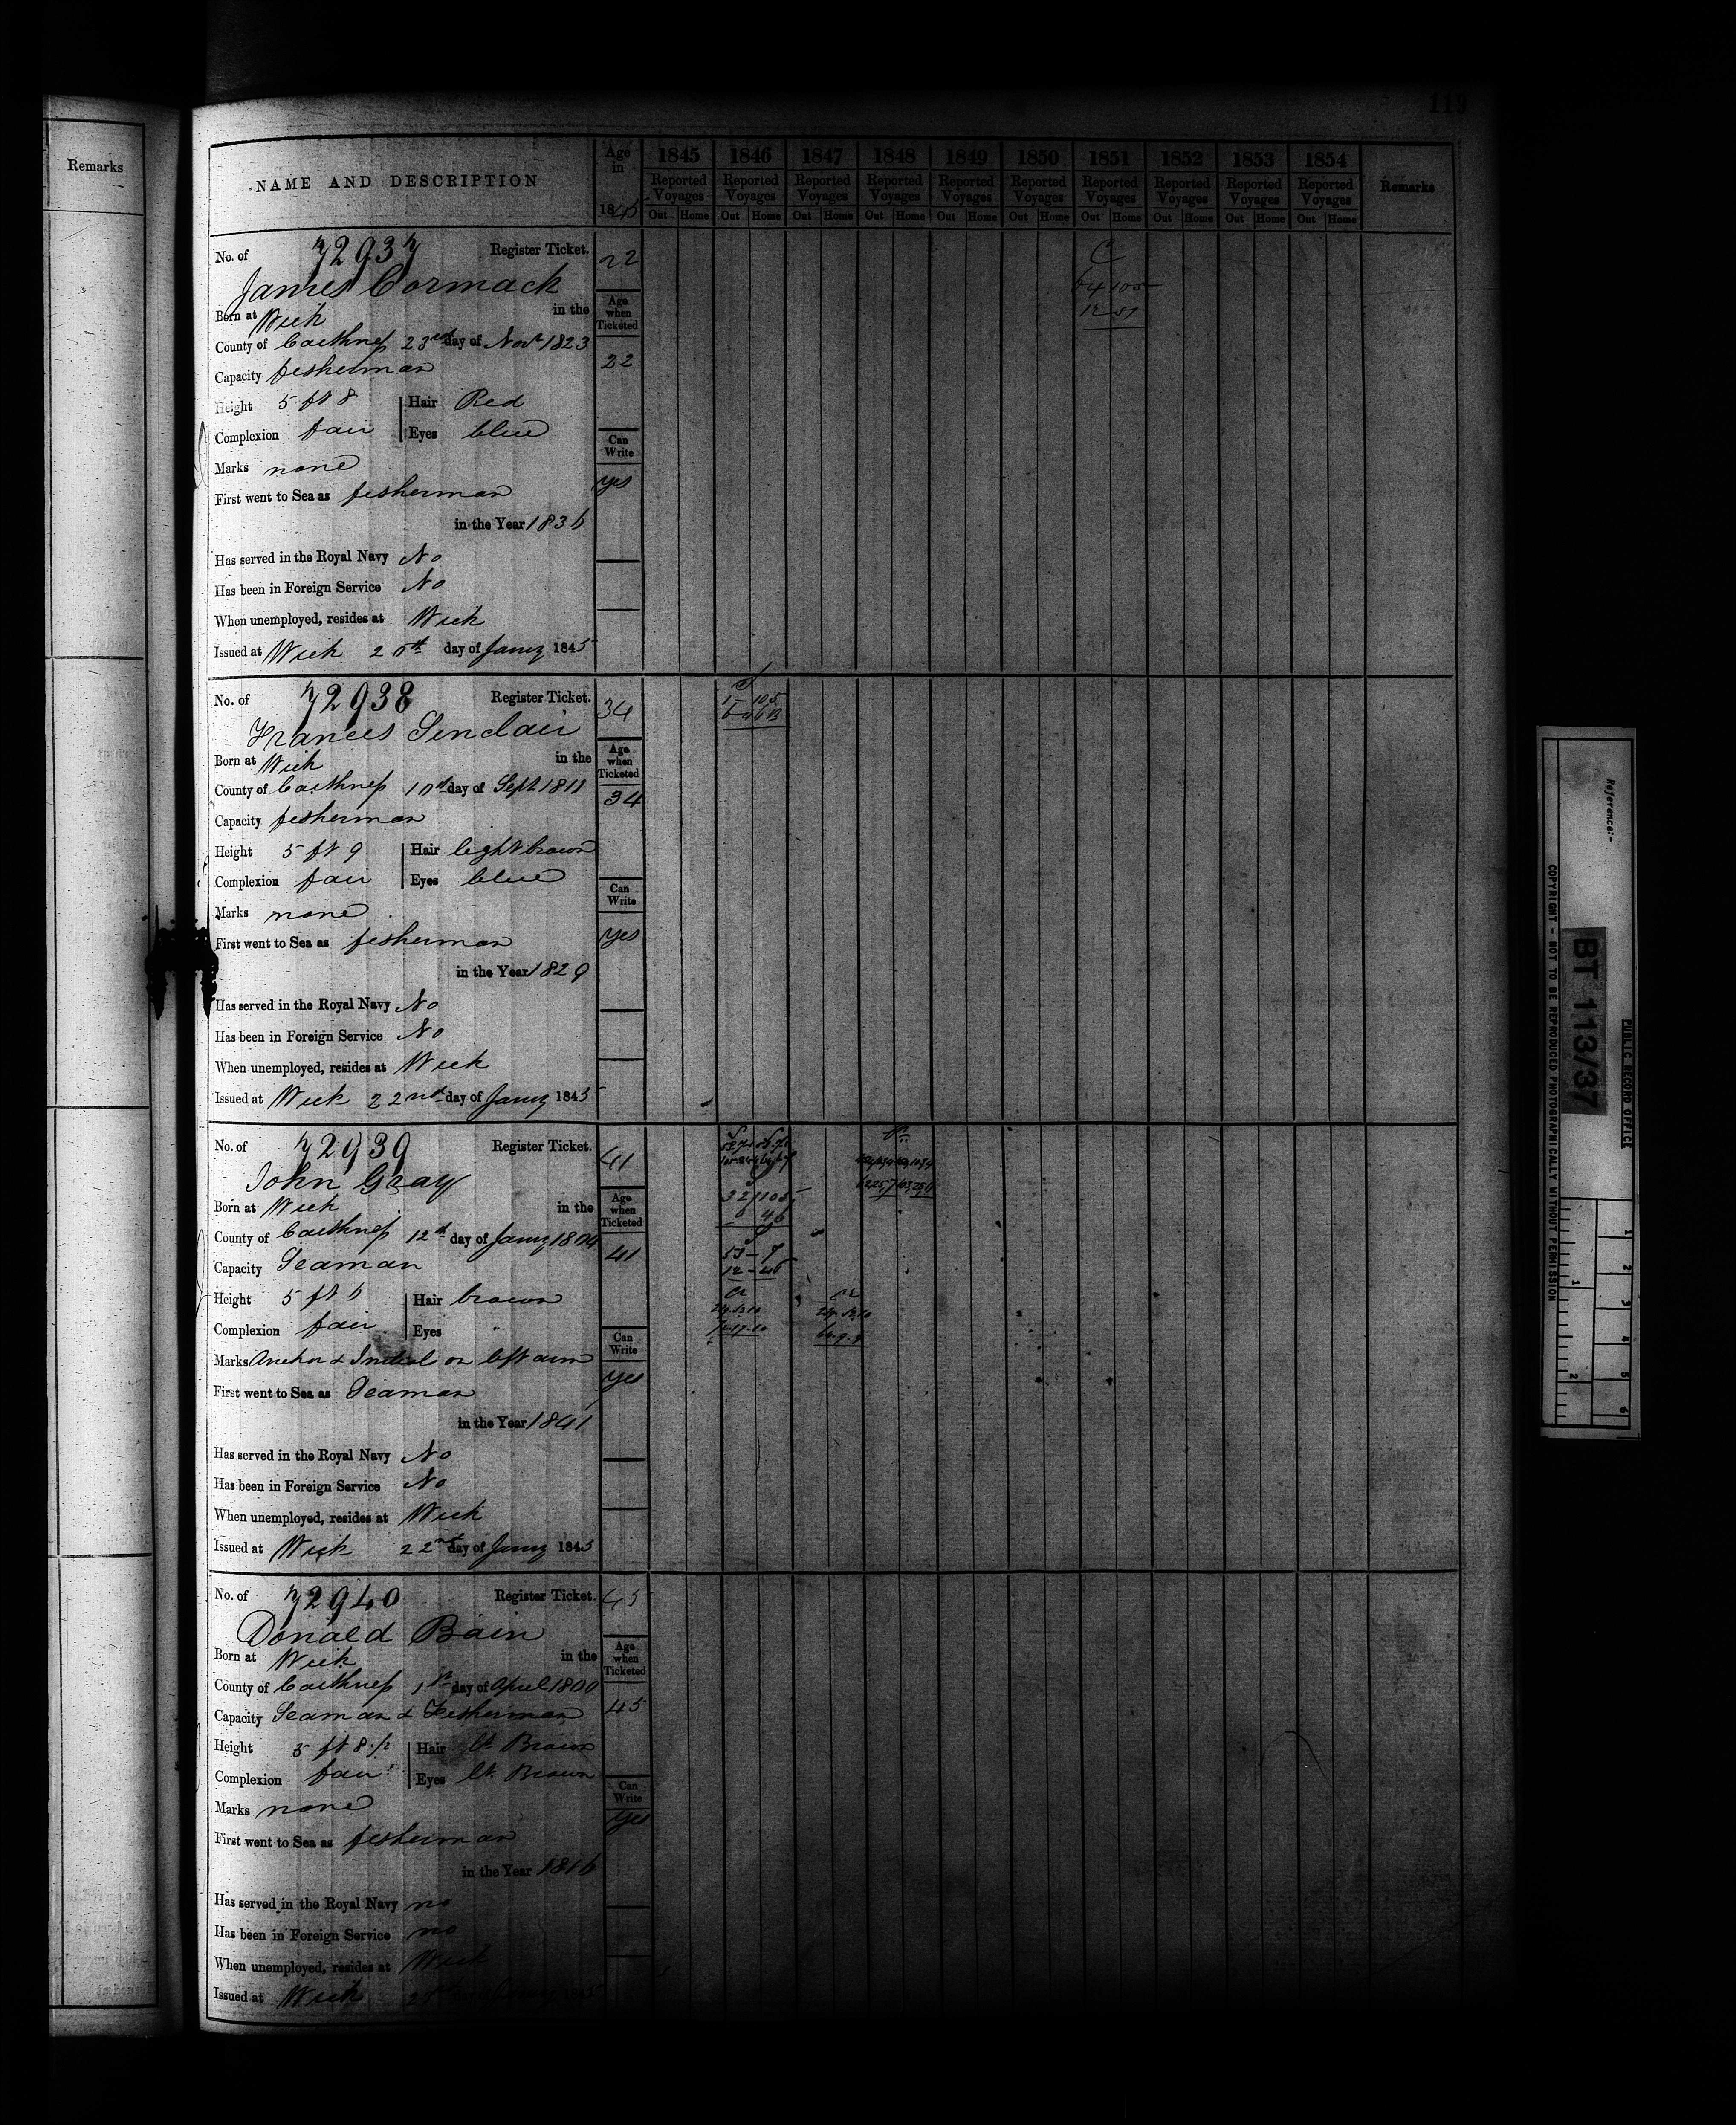 Remarks
119
NAME AND DESCRIPTION
Age in 1845
1845 1846 1847 1848 1849 1850 1851 1852 1853 1854
Reported Voyages Reported Voyages Reported Voyages Reported Voyages Reported Voyages Reported Voyages Reported Voyages Reported Voyages Reported Voyages Reported Voyages
Out Home Out Home Out Home Out Home Out Home Out Home Out Home Out Home Out Home Out Home
Remarks
No. of 72937 Register Ticket. 22
James Cormack
Born at Wick in the
Age when Ticketed
County of Caithness 23rd day of Novr 1823
22
Capacity fisherman
Height 5 ft 8 Hair Red
Complexion fair Eyes blue
Can Write
Marks none
yes
First went to Sea as fisherman
in the Year 1836
Has served in the Royal Navy No
Has been in Foreign Service No
When unemployed, resides at Wick
Issued at Wick day of Jany 1845
C
64 105
12-51
No. of 72938 Register Ticket. 34
Frances Sinclair
Born at Wick in the
Age when Ticketed
County of Caithness 10th day of Sept 1811
34
Capacity fisherman
Height 5 ft 9 Hair light brown
Complexion fair Eyes blue
Can Write
Marks none
yes
First went to Sea as fisherman
in the Year 1829
Has served in the Royal Navy No
Has been in Foreign Service No
When unemployed, resides at Wick
Issued at Wick 22nd day of Jany 1845
No. of 72939 Register Ticket. 41
John Gray
Born at Wick in the
Age when Ticketed
County of Caithness 12th day of Jany 1804
41
Capacity Seaman
Height 5 ft 6 Hair brown
Complexion fair Eyes
Can Write
Marks Anchor & Initial on left arm
yes
First went to Sea as Seaman
in the Year 1841
Has served in the Royal Navy No
Has been in Foreign Service No
When unemployed, resides at Wick
Issued at Wick 22nd day of Jany 1845
32 1105
6 46
53-9
12-46
No. of 72940 Register Ticket. 45
Donald Bain
Born at Wick in the
Age when Ticketed
County of Caithness 1st day of April 1800
45
Capacity Seaman & Fisherman
Height 5 ft 8 1/2 Hair lt Brown
Complexion fair Eyes lt. Brown
Can Write
Marks none
yes
First went to Sea as fisherman
in the Year 1816
Has served in the Royal Navy no
Has been in Foreign Service no
When unemployed, resides at Wick
Issued at Wick
Reference:-
PUBLIC RECORD OFFICE
BT 113/37
COPYRIGHT - NOT TO BE REPRODUCED PHOTOGRAPHICALLY WITHOUT PERMISSION
1 2 3 4 5 6
1 2